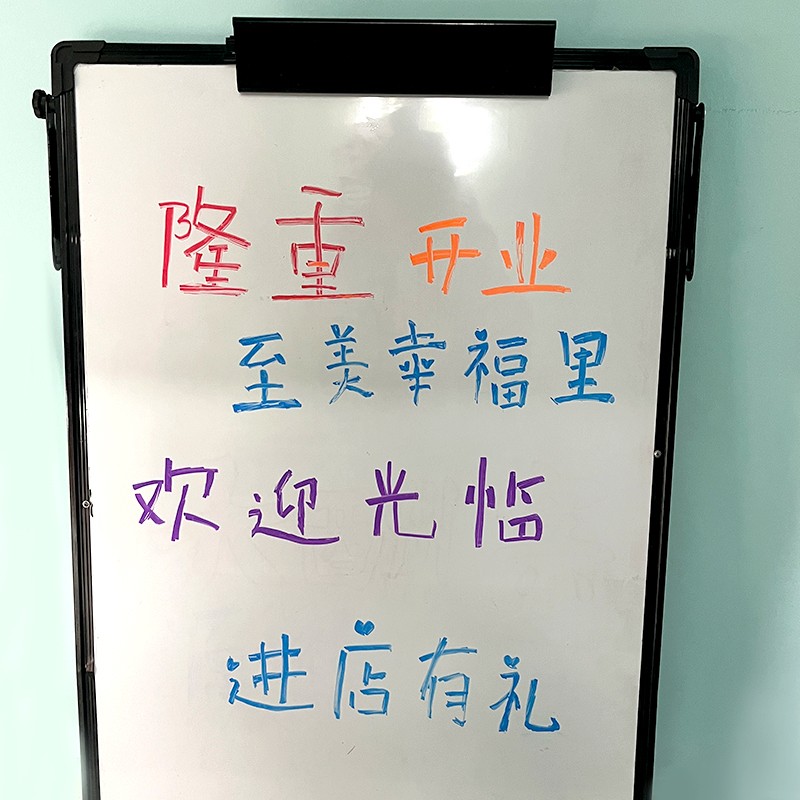 隆重开业
至美幸福里
欢迎光临
进店有礼